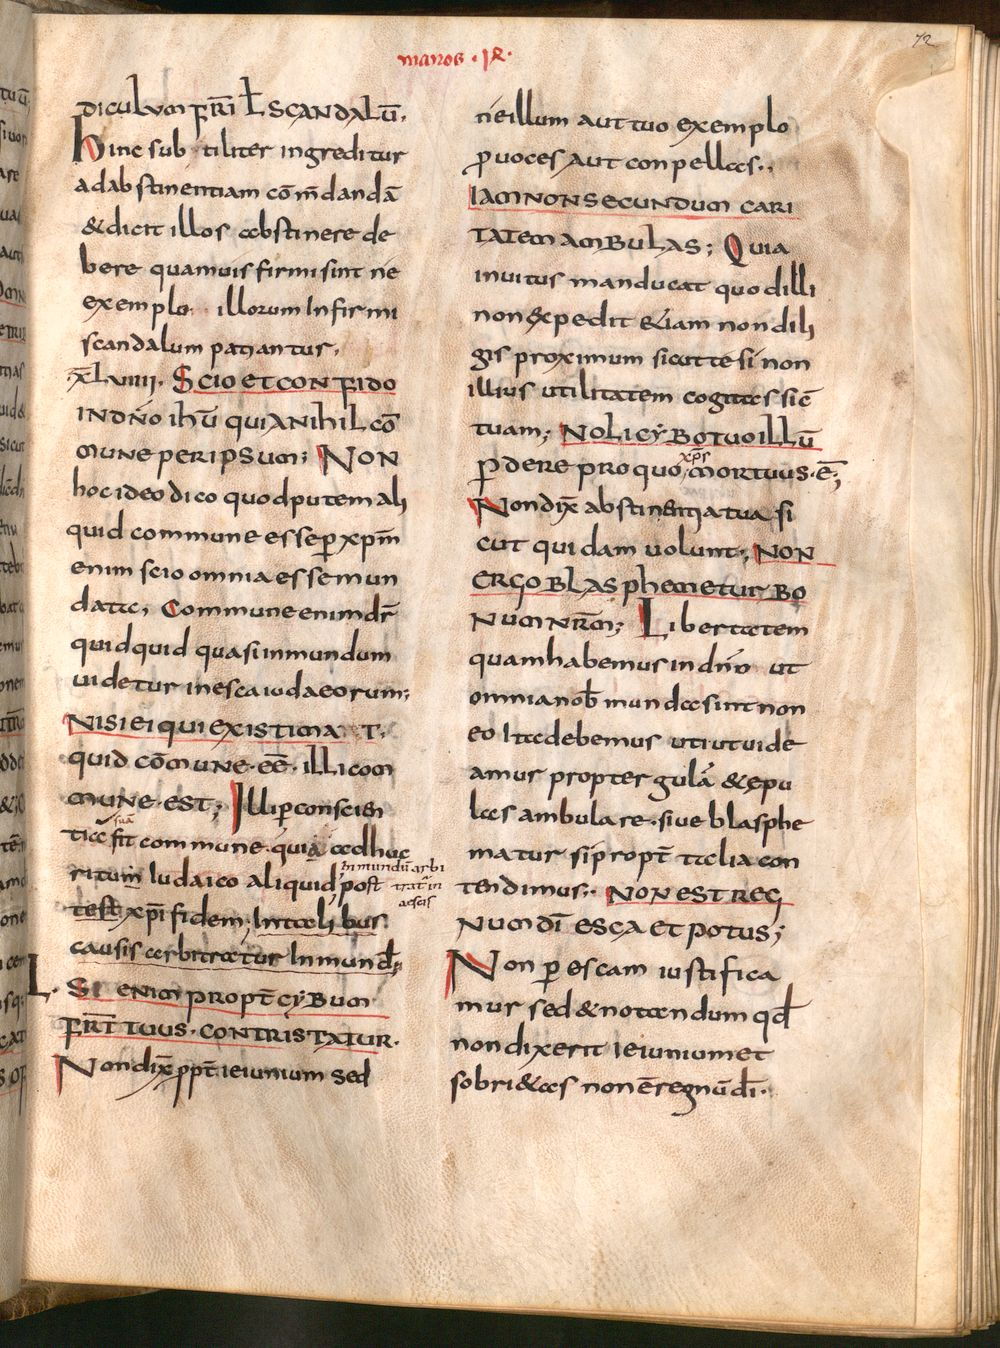 72
diculum fr̄i ł scandalū.
hinc subtiliter ingreditur
ad abstinentiam cōm̄dandā
& dicit illos abstinere de
bere quamuis firmi sint ne
exemplo illorum Infirmi
scandalum patiantur.
XLVIIII. Scio et confido
in dn̄o ihū qui a nihil cō
mune per ipsum; Non
hoc ideo dico quod putem ali
quid commune esse p̄ xp̄m
enim scio omnia esse mun
data, Commune enim dr̄
quidquid quasi inmundum
uidetur in esca iudaeorum;
Nisi ei qui existimat
quid cōmune·eē· illi com
mune·est; Illi p̄ conscien
suā
tiāe fit commune·quia adhuc
ritum Iudaico aliquid post
Inmundū arbi
tratur in
aescis
test xp̄i fidem; In talibus
causis arbitratur Inmund;
L. Si enim propt̄ cybum
fr̄t tuus·contristatur.
Non dix̄ ppt̄ ieiunium sed
ne illum aut tuo exemplo
puoces aut conpellas.,
Iam non secundum cari
tatem ambulas; Quia
inuitus manducat quod illi
non expedit &iam non dili
gis proximum sicut te si non
illius utilitatem cogitas sic̄
tuam; Noli cybo tuo illū
xp̄s
p̄dere pro quo mortuus·ē;
Non dix̄ abstinentia tua si
cut quidam uolunt; Non
ergo blasphemetur bo
num nr̄m; Libertatem
quam habemus in dn̄o ut
omnia nob̄ munda sint non
eo Ita debemus uti ut uide
amur propter gulā & epu
las ambulare·siue blasphe
matur si propt̄ talia con
tendimus;· Non est reg
num dī esca et potus;
Non p̄ escam iustifica
mur sed & notandum qđ
non dixerit ieiunium et
sobri&as non ē regnū dī·